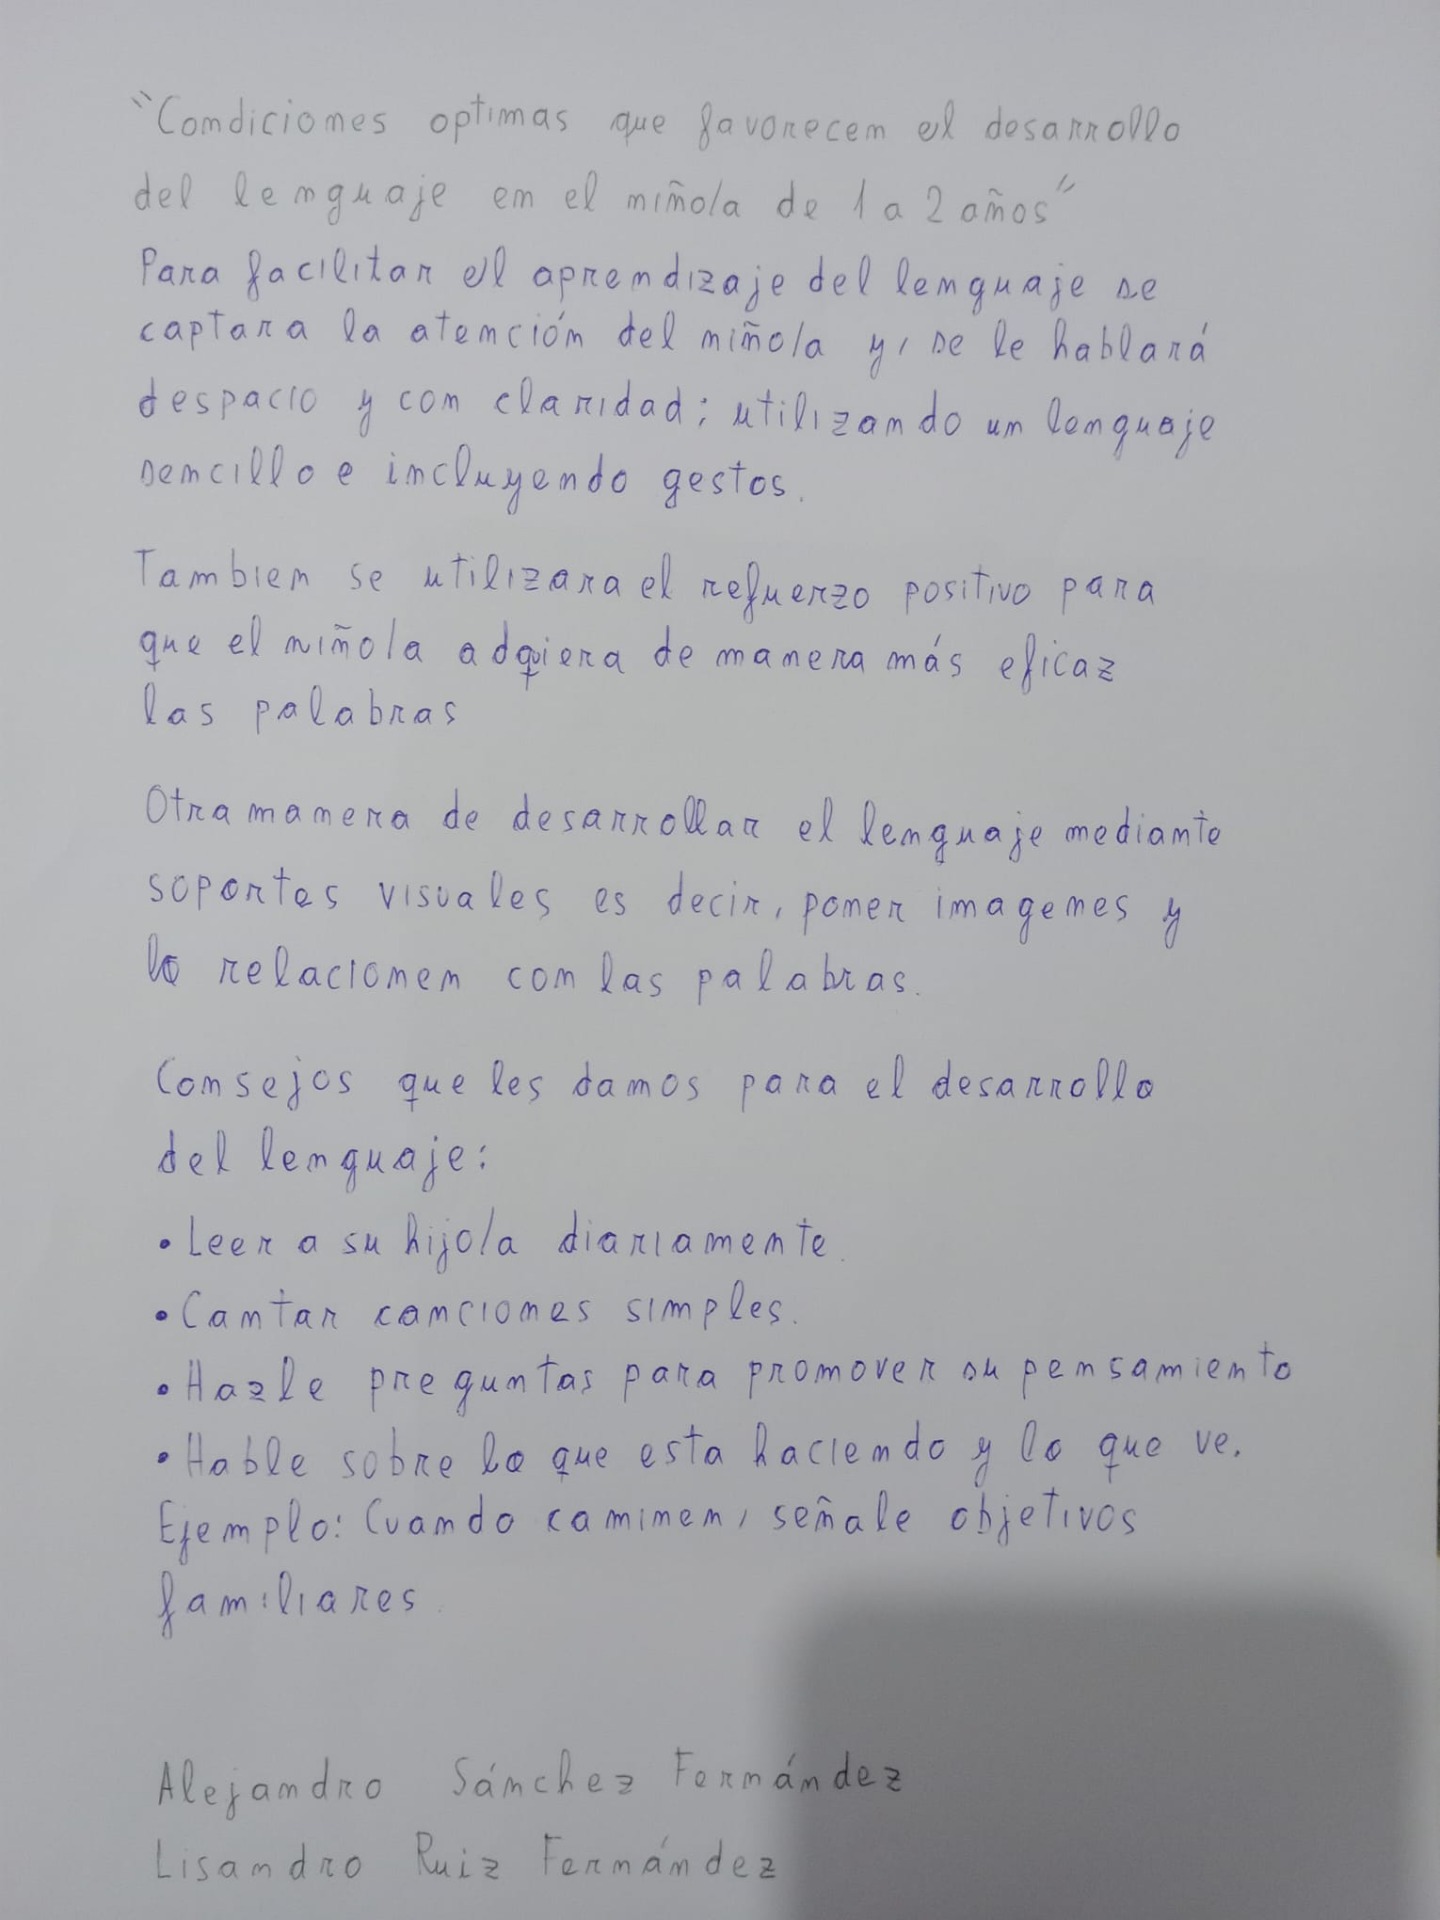 "Condiciones optimas que favorecen el desarrollo
del lenguaje en el niño/a de 1 a 2 años"
Para facilitar el aprendizaje del lenguaje se
captara la atención del niño/a y, se le hablará
despacio y con claridad; utilizando un lenguaje
sencillo e incluyendo gestos.
Tambien se utilizara el refuerzo positivo para
que el niño/a adquiera de manera más eficaz
las palabras
Otra manera de desarrollar el lenguaje mediante
soportes visuales es decir, poner imagenes y
lo relacionen con las palabras.
Consejos que les damos para el desarrollo
del lenguaje:
• Leer a su hijo/a diariamente.
• Cantar canciones simples.
• Hazle preguntas para promover su pensamiento
• Hable sobre lo que esta haciendo y lo que ve.
Ejemplo: Cuando caminen, señale objetivos
familiares.
Alejandro Sánchez Fernández
Lisandro Ruiz Fernández